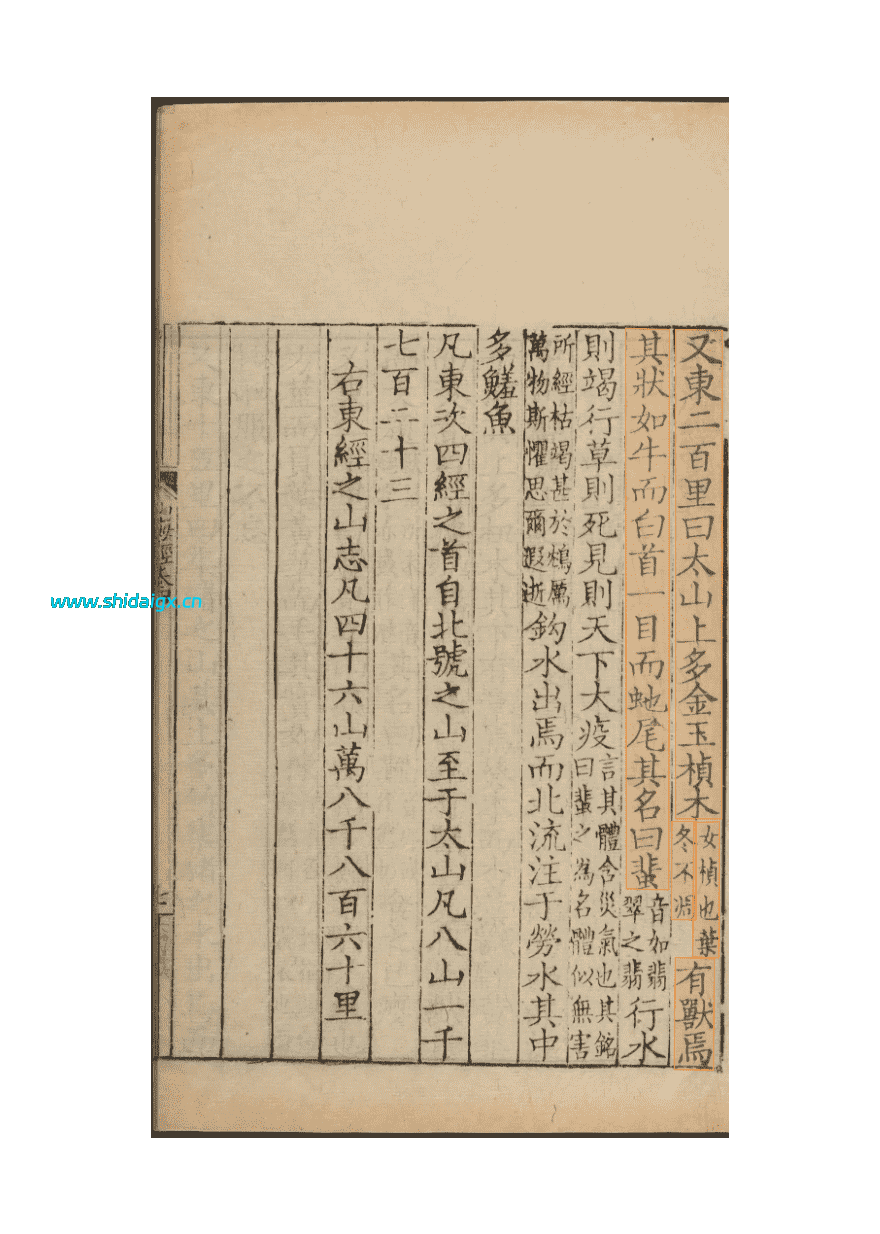 又東二百里曰太山上多金玉楨木女楨也葉冬不凋有獸焉
其狀如牛而白首一目而虵尾其名曰蜚音如翡翠之翡行水
則竭行草則死見則天下大疫言其體含災氣也其銘曰蜚之為名體似無害
所經枯竭甚於鴆厲萬物斯懼思爾遐逝鈎水出焉而北流注于勞水其中
多鱃魚
凡東次四經之首自北號之山至于太山凡八山一千
七百二十三
右東經之山志凡四十六山萬八千八百六十里
山海經
www.shidaigx.cn